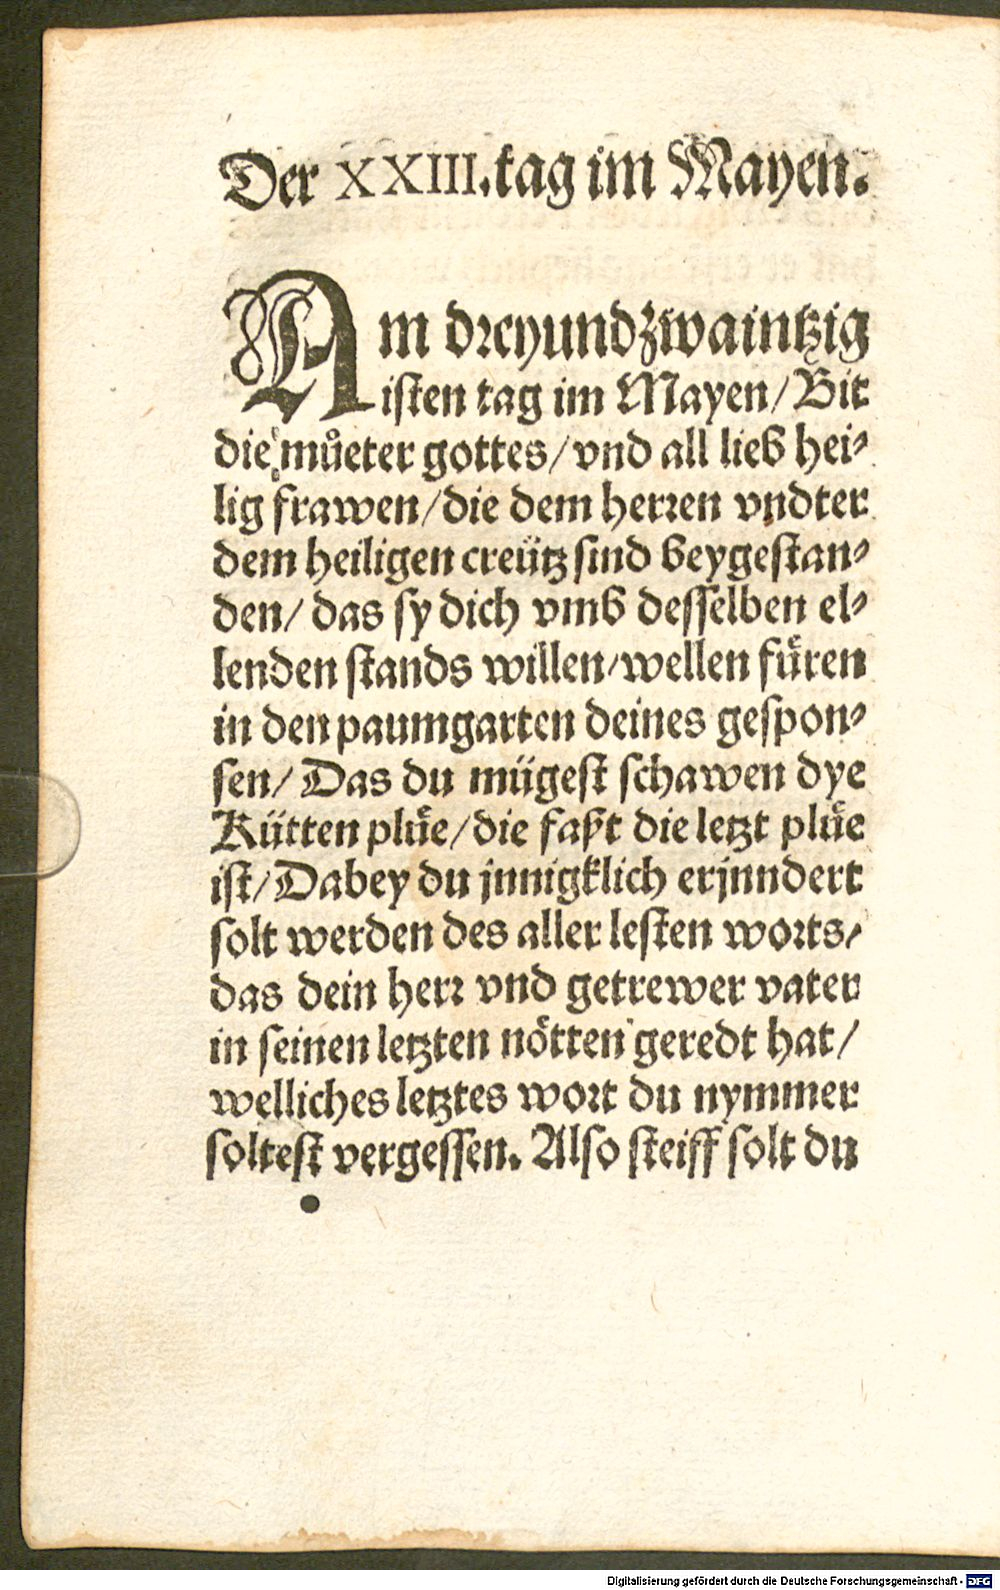 Der XXIII. tag im Mayen.
Am dreyundzwaintzig
isten tag im Mayen/ Bit
die můeter gottes/ vnd all lieb hei⸗
lig frawen/ die dem herren vndter
dem heiligen creütz sind beygestan⸗
den/ das sy dich vmb desselben el⸗
lenden stands willen/ wellen fuͤren
in den paumgarten deines gespon⸗
sen/ Das du mügest schawen dye
Kütten pluͤe/ die faßt die letzt pluͤe
ist/ Dabey du jnnigklich erjnndert
solt werden des aller lesten worts/
das dein herr vnd getrewer vater
in seinen letzten noͤtten geredt hat/
welliches letztes wort du nymmer
soltest vergessen. Also steiff solt du
Digitalisierung gefördert durch die Deutsche Forschungsgemeinschaft - DFG